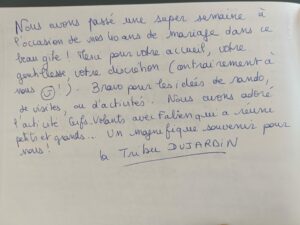 Nous avons passé une super semaine à
l'occasion de nos 40 ans de mariage dans ce
beau gîte ! Merci pour votre accueil, votre
gentillesse votre discrétion (contrairement à
nous !). Bravo pour les idées de rando,
de visites, ou d'activités. Nous avons adoré
l'activité Cerfs.Volants avec Fabien qui a réuni
petits et grands... Un magnifique souvenir pour
nous !
la Tribu DUJARDIN